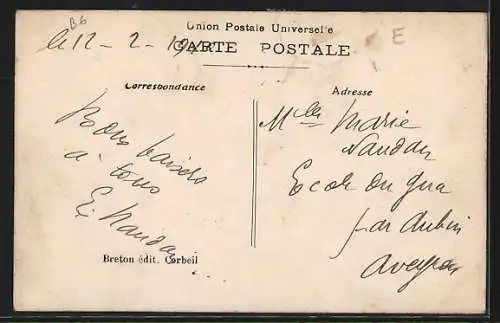 B6
Union Postale Universelle
E
le 12 - 2 - 19
CARTE POSTALE
Correspondance
Adresse
Bons baisers
à tous
E. Naudan
Melle Marie
Naudan
Ecole du Gua
par Aubin
Aveyron
Breton édit. Corbeil